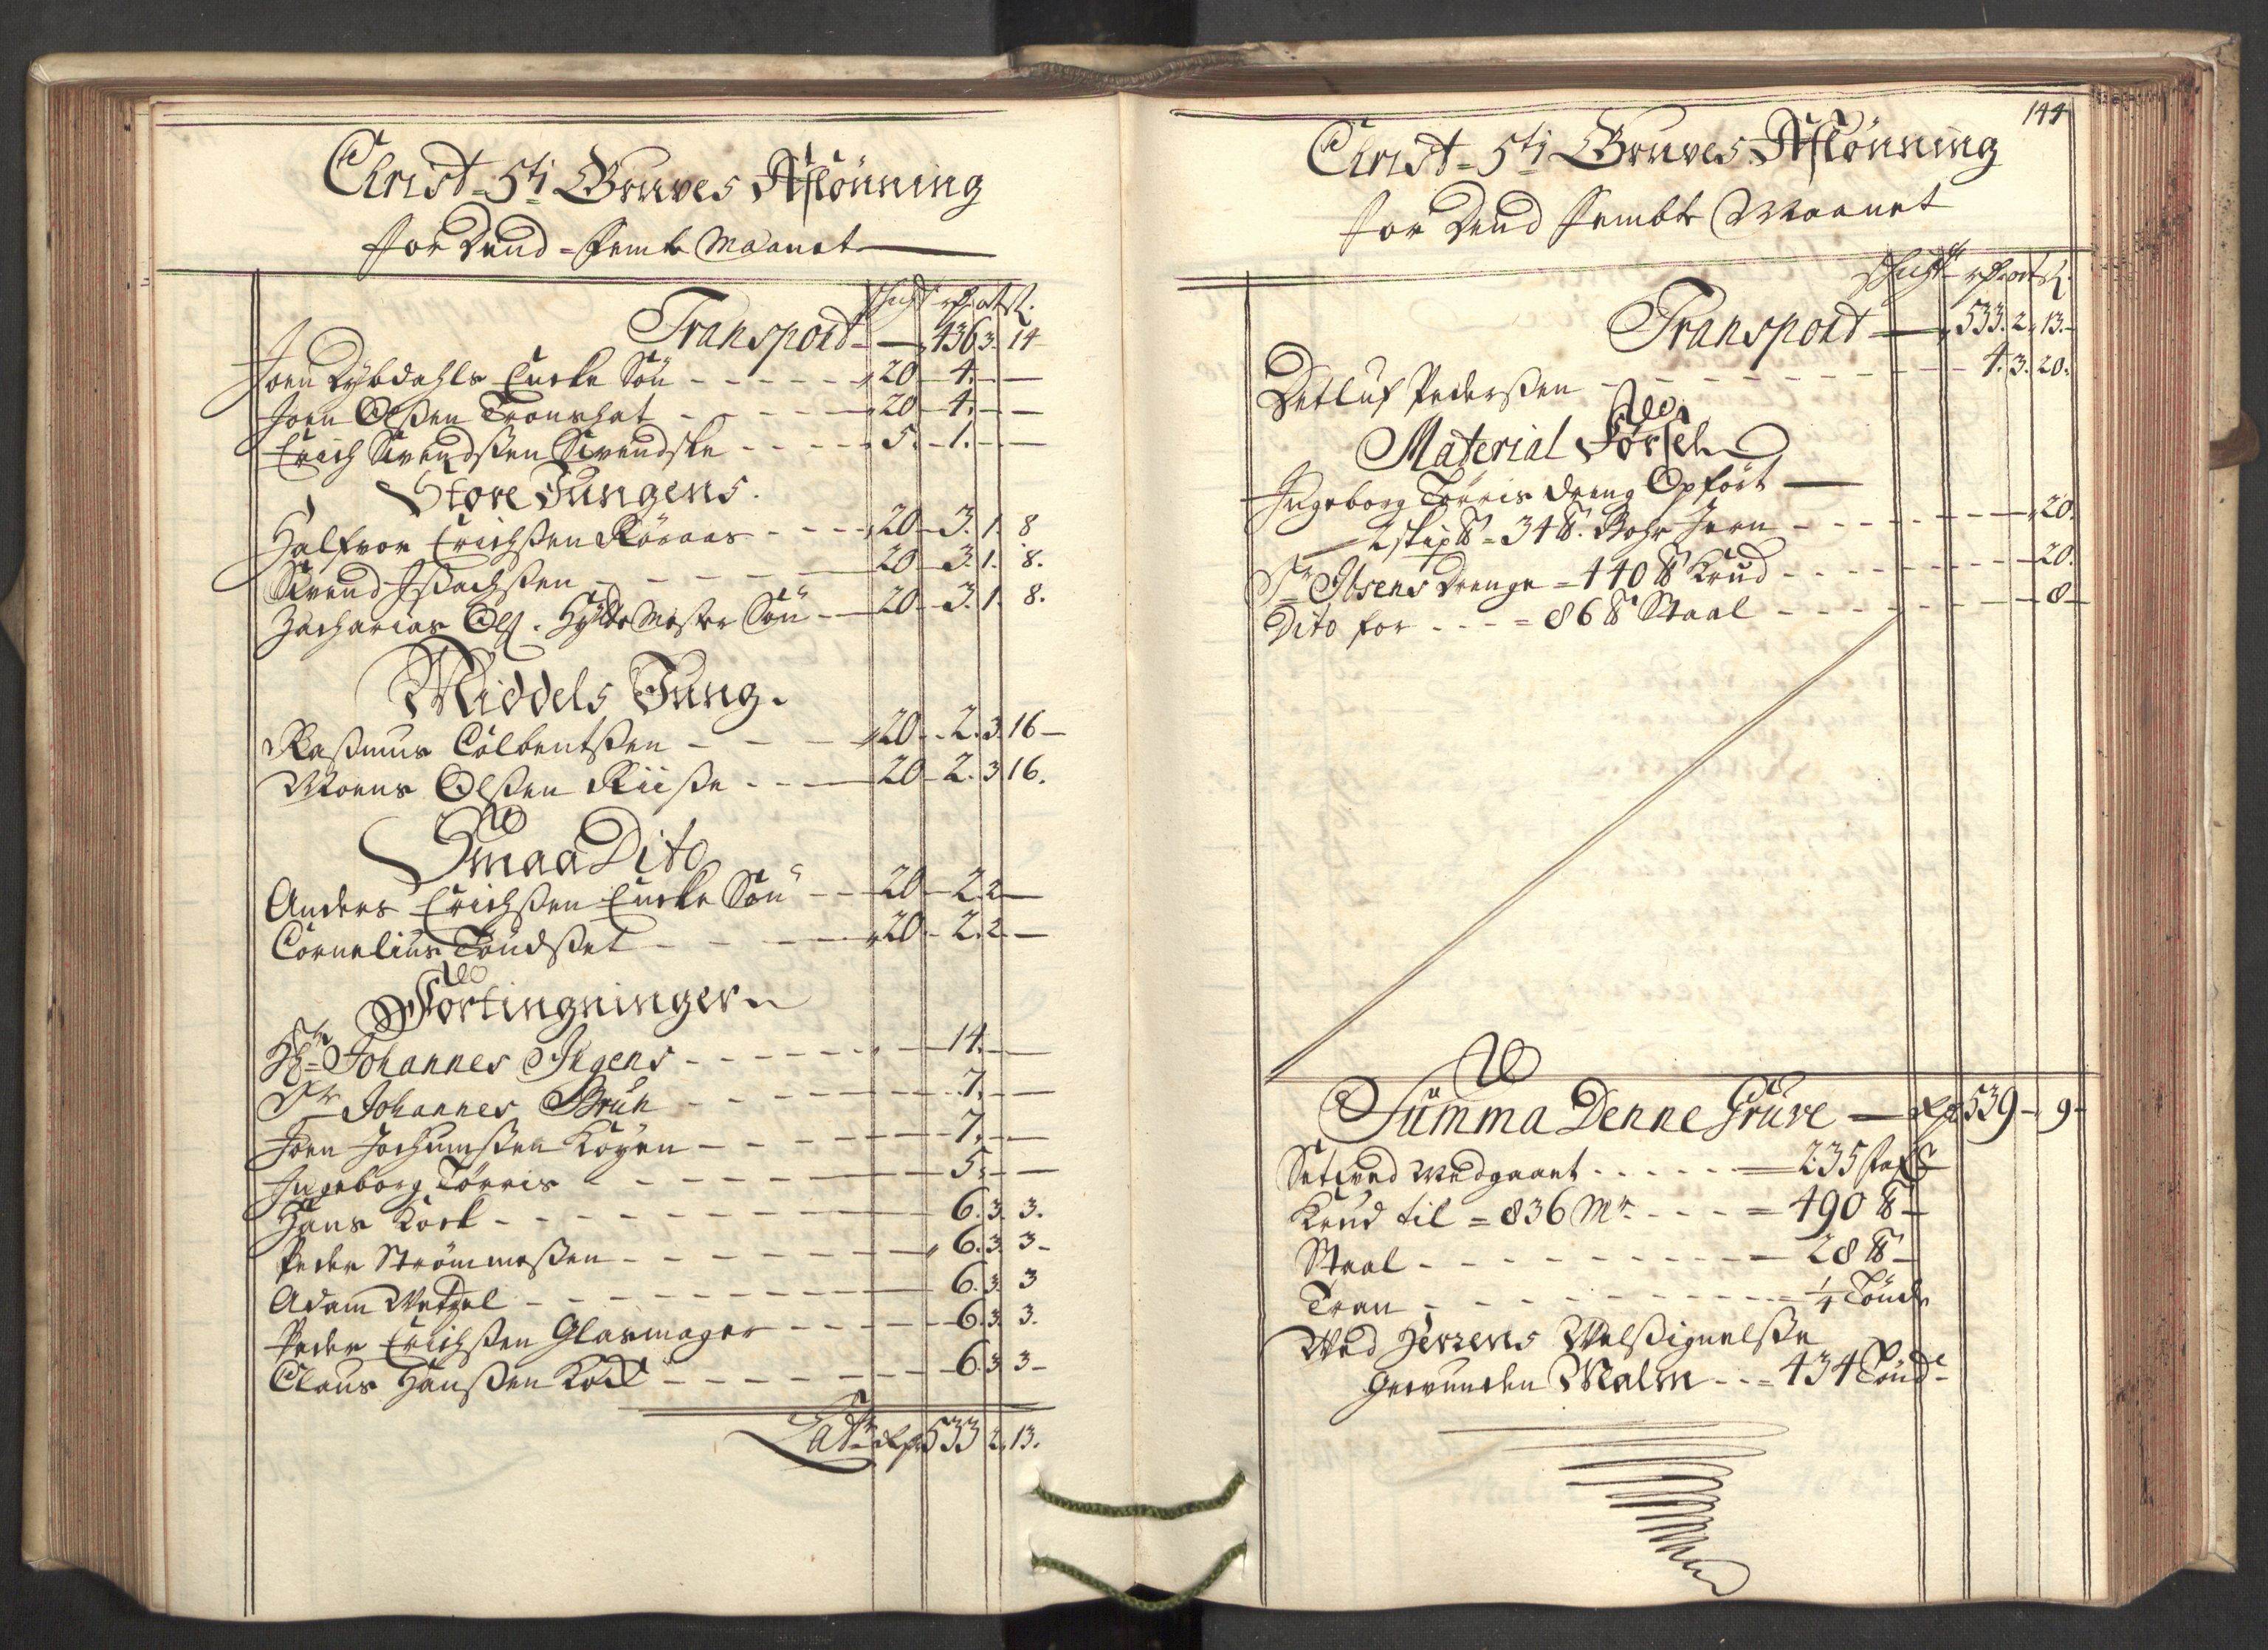 Christ=5ti Gruves Afslönning
for Dend=Femte Maanet
Schicht rdr ort ß.
Transport 436 3. 14
Joen Dybdahls Encke Sön 20 4.
Joen Olßen Tronshat 20 4.
Erich Svendßen Svendske 5. 1.
Store Jungens.
Halfvor Erichßen Röraas 20 3. 1. 8
Svend Isachßen 20 3. 1. 8.
Zacharias Olß. Hytte Mester Sön 20 3. 1. 8.
Middels Jung.
Raßmus Colbentßen 20 2. 3. 16
Moens Olßen Riiße 20 2. 3 16.
Smaa Dito
Anders Erichßen Encke Sön 20 2. 2
Cornelius Töndßet 20 2. 2
Fortingninger
Hr Johannes Irgens 14.
Sr Johannes Bruk 7.
Joen Jochumßen Koyen 7.
Ingeborg Törris 5.
Hans Kock 6. 3. 3.
Peder Strömmeßen 6. 3. 3
Adam Wetzel 6. 3. 3
Peder Erichßen Glasmager 6. 3 3.
Claus Hanßen Kock 6. 3 3
Lat. Rdr 533 2. 13.
144
Christ=5ti Gruves Afslönning
for Dend Fembte Maanet
Schicht rdr ort ß.
Transport 533. 2. 13.
Detluf Pederßen 4. 3. 20.
Material Förßel
Ingeborg Törris dreng Opfört
1 skip ℔ = 34 ℔. Bohr Jern 20.
Sr Ibsens Drenge = 440 ℔ Krud 20.
Dito for = 86 ℔ Staal 8
Summa Denne Gruve Rdr 539 9
Setved Medgaaet 235 fafn
Krud til = 836 Mr. = 490 ℔
Staal = 28 ℔
Tran = 1/4 Tönde
Ved Herrens Velßignelße
Gevunden Malm = 434 Tönd